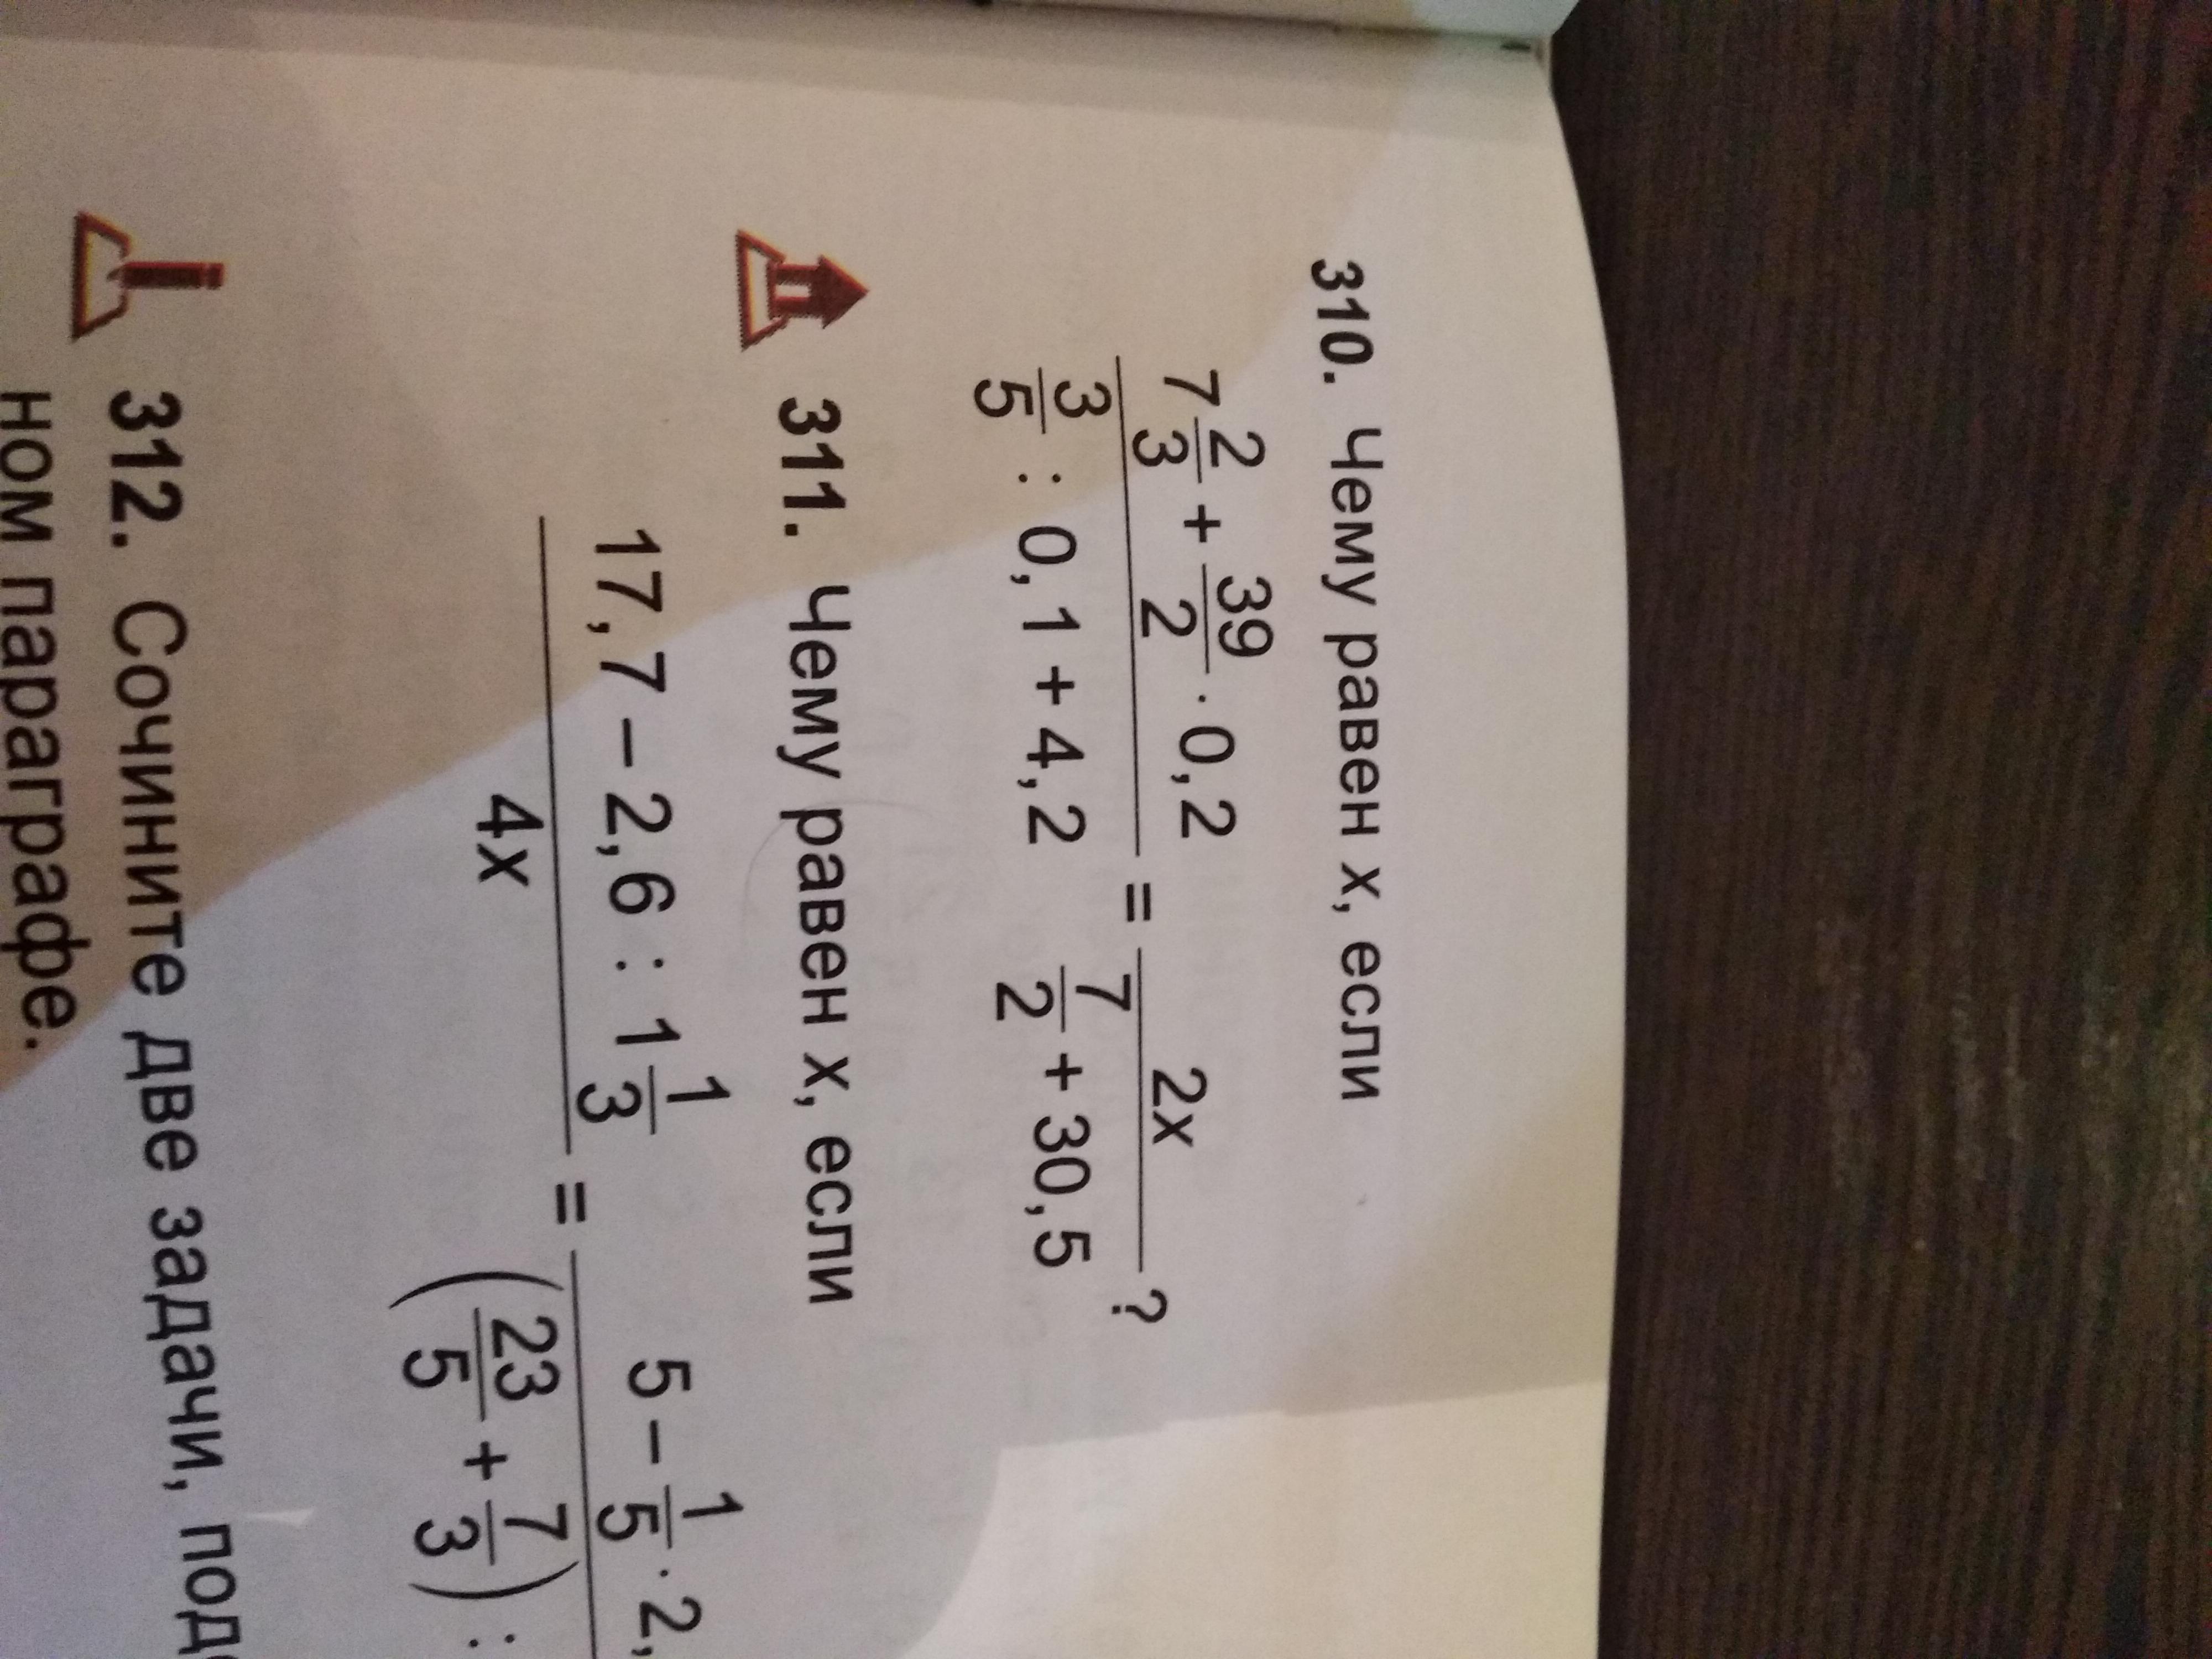 310. Чему равен x, если
7 2/3 + 39/2 · 0,2 / 3/5 : 0,1 + 4,2 = 2x / 7/2 + 30,5 ?
311. Чему равен x, если
17,7 – 2,6 : 1 1/3 / 4x = 5 – 1/5 · 2, / (23/5 + 7/3) :
312. Сочините две задачи,
ном параграфе.